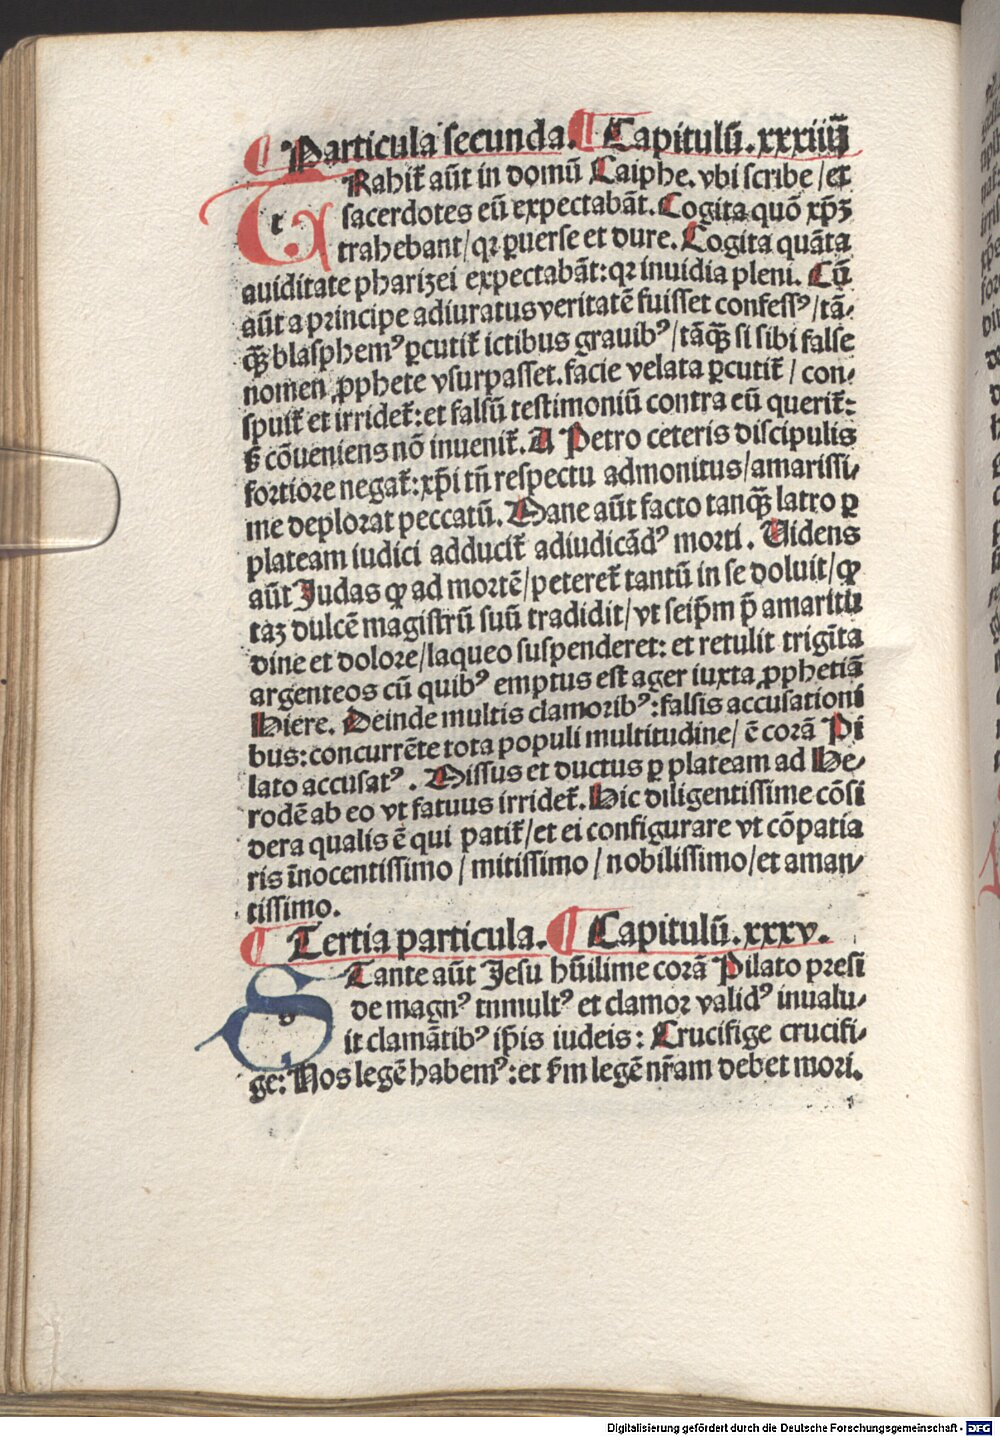 ¶ Particula secunda. ¶ Capitulū. xxxiiij
TRahit̃ aūt in domū Caiphe. vbi scribe / et
sacerdotes eū expectabāt. Cogita quō xp̄ꝫ
trahebant / qꝛ ꝑuerse et dure. Cogita quāta
auiditate pharizei expectabāt: qꝛ inuidia pleni. Cū
aūt a principe adiuratus veritatē fuisset confessꝰ / tā-
qꝫ̄ blasphemꝰ ꝑcutit̃ ictibus grauibꝰ / tāqꝫ̄ si sibi false
nomen ꝓphete vsurpasset. facie velata ꝑcutit̃ / con-
spuit̃ et irridet̃: et falsū testimoniū contra eū querit̃:
sꝫ cōueniens nō inuenit̃. A Petro ceteris discipulis
fortiore negat̃: xp̄i tn̄ respectu admonitus / amarissi-
me deplorat peccatū. Mane aūt facto tanqꝫ̄ latro ꝑ
plateam iudici adducit̃ adiudicādꝰ morti. Uidens
aūt Judas ꝙ ad mortē / peteret̃ tantū in se doluit / ꝙ
taꝫ dulcē magistrū suū tradidit / vt seip̄m p̄ amaritu
dine et dolore / laqueo suspenderet: et retulit trigīta
argenteos cū quibꝰ emptus est ager iuxta ꝓphetiā
Hiere. Deinde multis clamoribꝰ: falsis accusationi
bus: concurrēte tota populi multitudine / ē corā Pi
lato accusatꝰ. Missus et ductus ꝑ plateam ad He-
rodē ab eo vt fatuus irridet̃. Hic diligentissime cōsi
dera qualis ē qui patit̃ / et ei configurare vt cōpatia
ris īnocentissimo / mitissimo / nobilissimo / et aman-
tissimo.
¶ Tertia particula. ¶ Capitulū. xxxv.
STante aūt Jesu hūilime corā Pilato presi
de magnꝰ tnmultꝰ et clamor validꝰ inualu-
it clamātibꝰ ip̄is iudeis: Crucifige crucifi-
ge: Nos legē habemꝰ: et ẜm legē nr̄am debet mori.
Digitalisierung gefördert durch die Deutsche Forschungsgemeinschaft - DFG